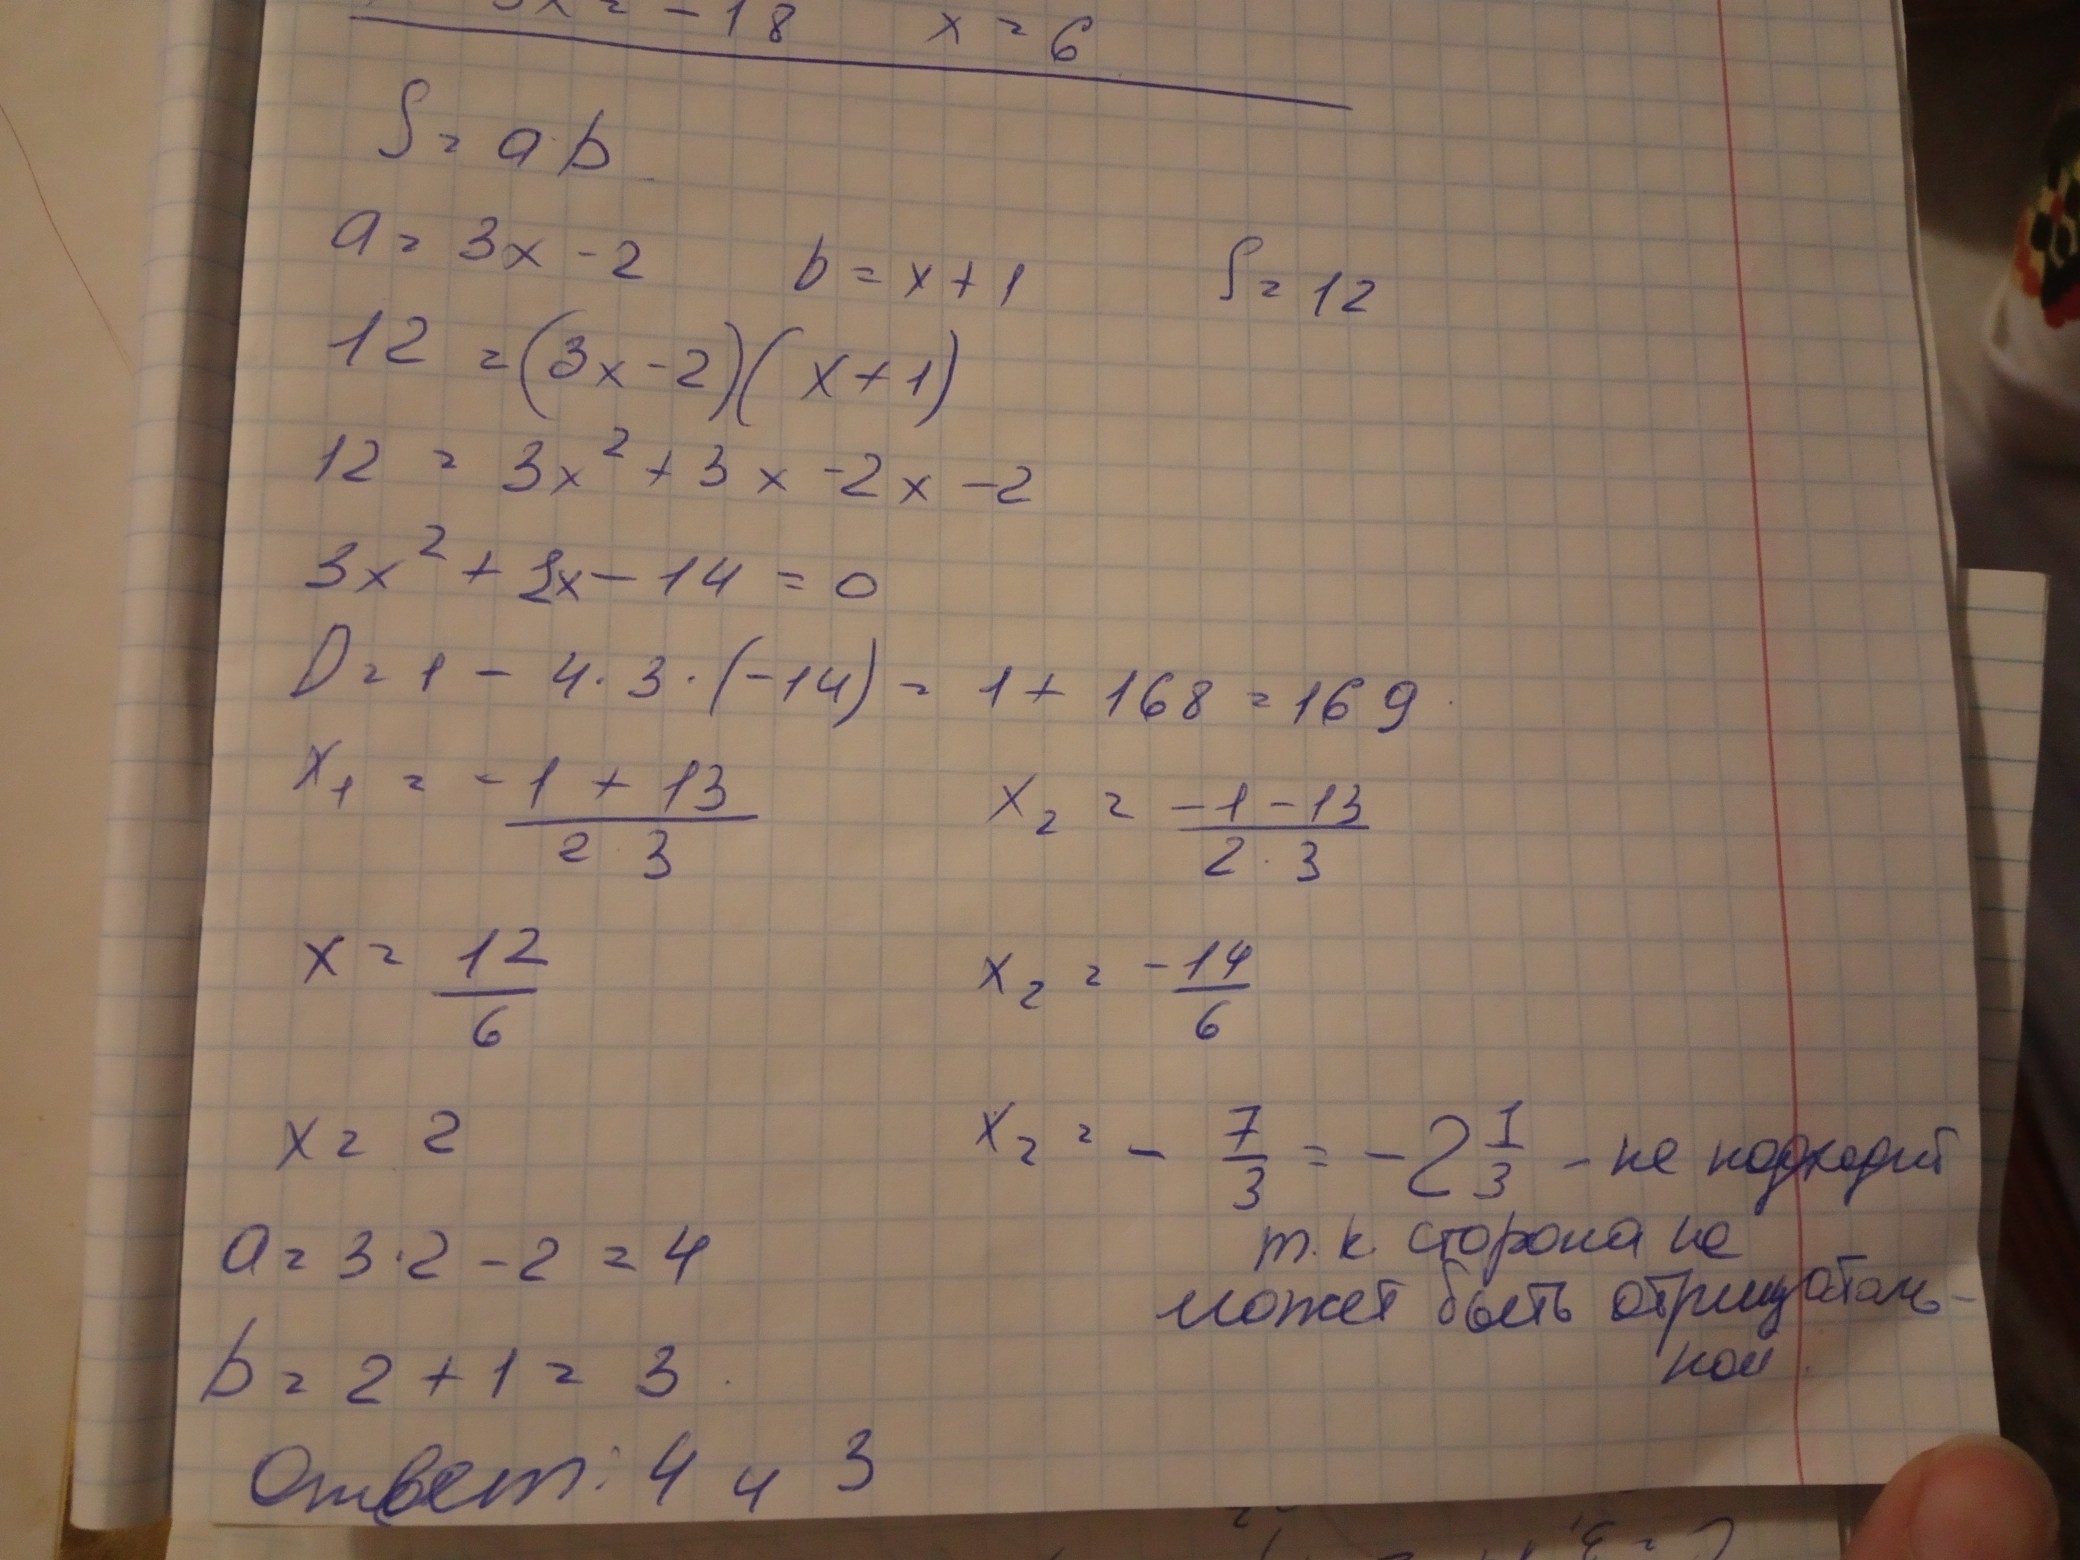 3x = -18 x = 6
S = a·b
a = 3x - 2 b = x + 1 S = 12
12 = (3x - 2)(x + 1)
12 = 3x² + 3x - 2x - 2
3x² + 1x - 14 = 0
D = 1 - 4·3·(-14) = 1 + 168 = 169
x₁ = (-1 + 13)/(2·3) x₂ = (-1 - 13)/(2·3)
x = 12/6 x₂ = -14/6
x = 2 x₂ = -7/3 = -2 1/3 - не подходит
т.к. сторона не
a = 3·2 - 2 = 4
может быть отрицатель-
ной.
b = 2 + 1 = 3
Ответ: 4 и 3